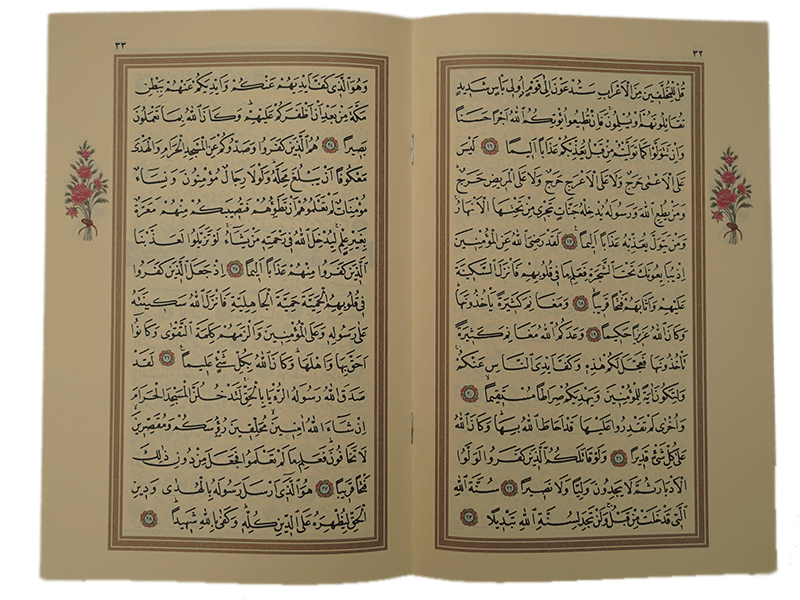 ٣٢
قُلْ لِلْمُخَلَّفِينَ مِنَ الْاَعْرَابِ سَتُدْعَوْنَ اِلٰى قَوْمٍ اُولِى بَأْسٍ شَدِيدٍ
تُقَاتِلُونَهُمْ اَوْ يُسْلِمُونَ فَاِنْ تُطِيعُوا يُؤْتِكُمُ اللّٰهُ اَجْرًا حَسَنًا
وَاِنْ تَتَوَلَّوْا كَمَا تَوَلَّيْتُمْ مِنْ قَبْلُ يُعَذِّبْكُمْ عَذَابًا اَلِيمًا ١٦ لَيْسَ
عَلَى الْاَعْمٰى حَرَجٌ وَلَا عَلَى الْاَعْرَجِ حَرَجٌ وَلَا عَلَى الْمَرِيضِ حَرَجٌ
وَمَنْ يُطِعِ اللّٰهَ وَرَسُولَهُ يُدْخِلْهُ جَنَّاتٍ تَجْرِى مِنْ تَحْتِهَا الْاَنْهَارُ
وَمَنْ يَتَوَلَّ يُعَذِّبْهُ عَذَابًا اَلِيمًا ١٧ لَقَدْ رَضِىَ اللّٰهُ عَنِ الْمُؤْمِنِينَ
اِذْ يُبَايِعُونَكَ تَحْتَ الشَّجَرَةِ فَعَلِمَ مَا فِى قُلُوبِهِمْ فَاَنْزَلَ السَّكِينَةَ
عَلَيْهِمْ وَاَثَابَهُمْ فَتْحًا قَرِيبًا ١٨ وَمَغَانِمَ كَثِيرَةً يَأْخُذُونَهَا
وَكَانَ اللّٰهُ عَزِيزًا حَكِيمًا ١٩ وَعَدَكُمُ اللّٰهُ مَغَانِمَ كَثِيرَةً
تَأْخُذُونَهَا فَعَجَّلَ لَكُمْ هٰذِهِ وَكَفَّ اَيْدِىَ النَّاسِ عَنْكُمْ
وَلِتَكُونَ اٰيَةً لِلْمُؤْمِنِينَ وَيَهْدِيَكُمْ صِرَاطًا مُسْتَقِيمًا ٢٠
وَاُخْرٰى لَمْ تَقْدِرُوا عَلَيْهَا قَدْ اَحَاطَ اللّٰهُ بِهَا وَكَانَ اللّٰهُ
عَلٰى كُلِّ شَىْءٍ قَدِيرًا ٢١ وَلَوْ قَاتَلَكُمُ الَّذِينَ كَفَرُوا لَوَلَّوُا
الْاَدْبَارَ ثُمَّ لَا يَجِدُونَ وَلِيًّا وَلَا نَصِيرًا ٢٢ سُنَّةَ اللّٰهِ
الَّتِى قَدْ خَلَتْ مِنْ قَبْلُ وَلَنْ تَجِدَ لِسُنَّةِ اللّٰهِ تَبْدِيلًا ٢٣
٣٣
وَهُوَ الَّذِى كَفَّ اَيْدِيَهُمْ عَنْكُمْ وَاَيْدِيَكُمْ عَنْهُمْ بِبَطْنِ
مَكَّةَ مِنْ بَعْدِ اَنْ اَظْفَرَكُمْ عَلَيْهِمْ وَكَانَ اللّٰهُ بِمَا تَعْمَلُونَ
بَصِيرًا ٢٤ هُمُ الَّذِينَ كَفَرُوا وَصَدُّوكُمْ عَنِ الْمَسْجِدِ الْحَرَامِ وَالْهَدْىَ
مَعْكُوفًا اَنْ يَبْلُغَ مَحِلَّهُ وَلَوْلَا رِجَالٌ مُؤْمِنُونَ وَنِسَاءٌ
مُؤْمِنَاتٌ لَمْ تَعْلَمُوهُمْ اَنْ تَطَؤُهُمْ فَتُصِيبَكُمْ مِنْهُمْ مَعَرَّةٌ
بِغَيْرِ عِلْمٍ لِيُدْخِلَ اللّٰهُ فِى رَحْمَتِهِ مَنْ يَشَاءُ لَوْ تَزَيَّلُوا لَعَذَّبْنَا
الَّذِينَ كَفَرُوا مِنْهُمْ عَذَابًا اَلِيمًا ٢٥ اِذْ جَعَلَ الَّذِينَ كَفَرُوا
فِى قُلُوبِهِمُ الْحَمِيَّةَ حَمِيَّةَ الْجَاهِلِيَّةِ فَاَنْزَلَ اللّٰهُ سَكِينَتَهُ
عَلٰى رَسُولِهِ وَعَلَى الْمُؤْمِنِينَ وَاَلْزَمَهُمْ كَلِمَةَ التَّقْوٰى وَكَانُوا
اَحَقَّ بِهَا وَاَهْلَهَا وَكَانَ اللّٰهُ بِكُلِّ شَىْءٍ عَلِيمًا ٢٦ لَقَدْ
صَدَقَ اللّٰهُ رَسُولَهُ الرُّءْيَا بِالْحَقِّ لَتَدْخُلُنَّ الْمَسْجِدَ الْحَرَامَ
اِنْ شَاءَ اللّٰهُ اٰمِنِينَ مُحَلِّقِينَ رُؤُسَكُمْ وَمُقَصِّرِينَ
لَا تَخَافُونَ فَعَلِمَ مَا لَمْ تَعْلَمُوا فَجَعَلَ مِنْ دُونِ ذٰلِكَ
فَتْحًا قَرِيبًا ٢٧ هُوَ الَّذِى اَرْسَلَ رَسُولَهُ بِالْهُدٰى وَدِينِ
الْحَقِّ لِيُظْهِرَهُ عَلَى الدِّينِ كُلِّهِ وَكَفٰى بِاللّٰهِ شَهِيدًا ٢٨